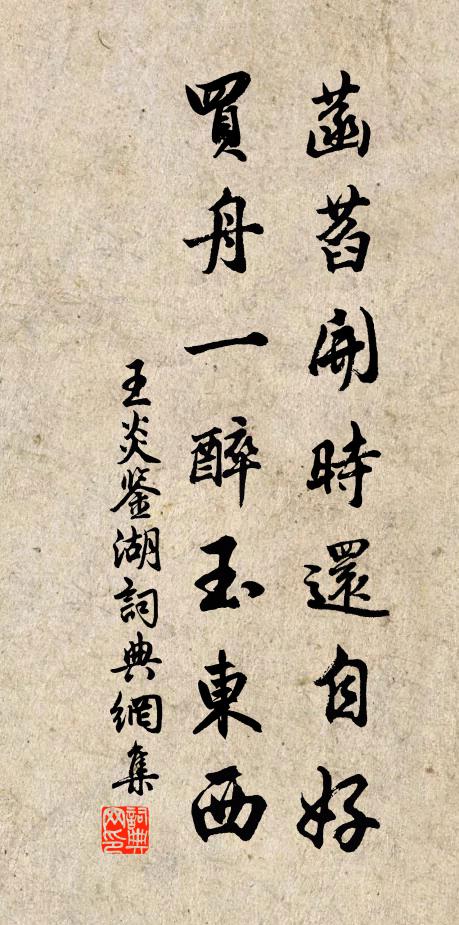 菡萏開時還自好
買舟一醉玉東西
王炎鉴湖詞典網集
詞典
网印